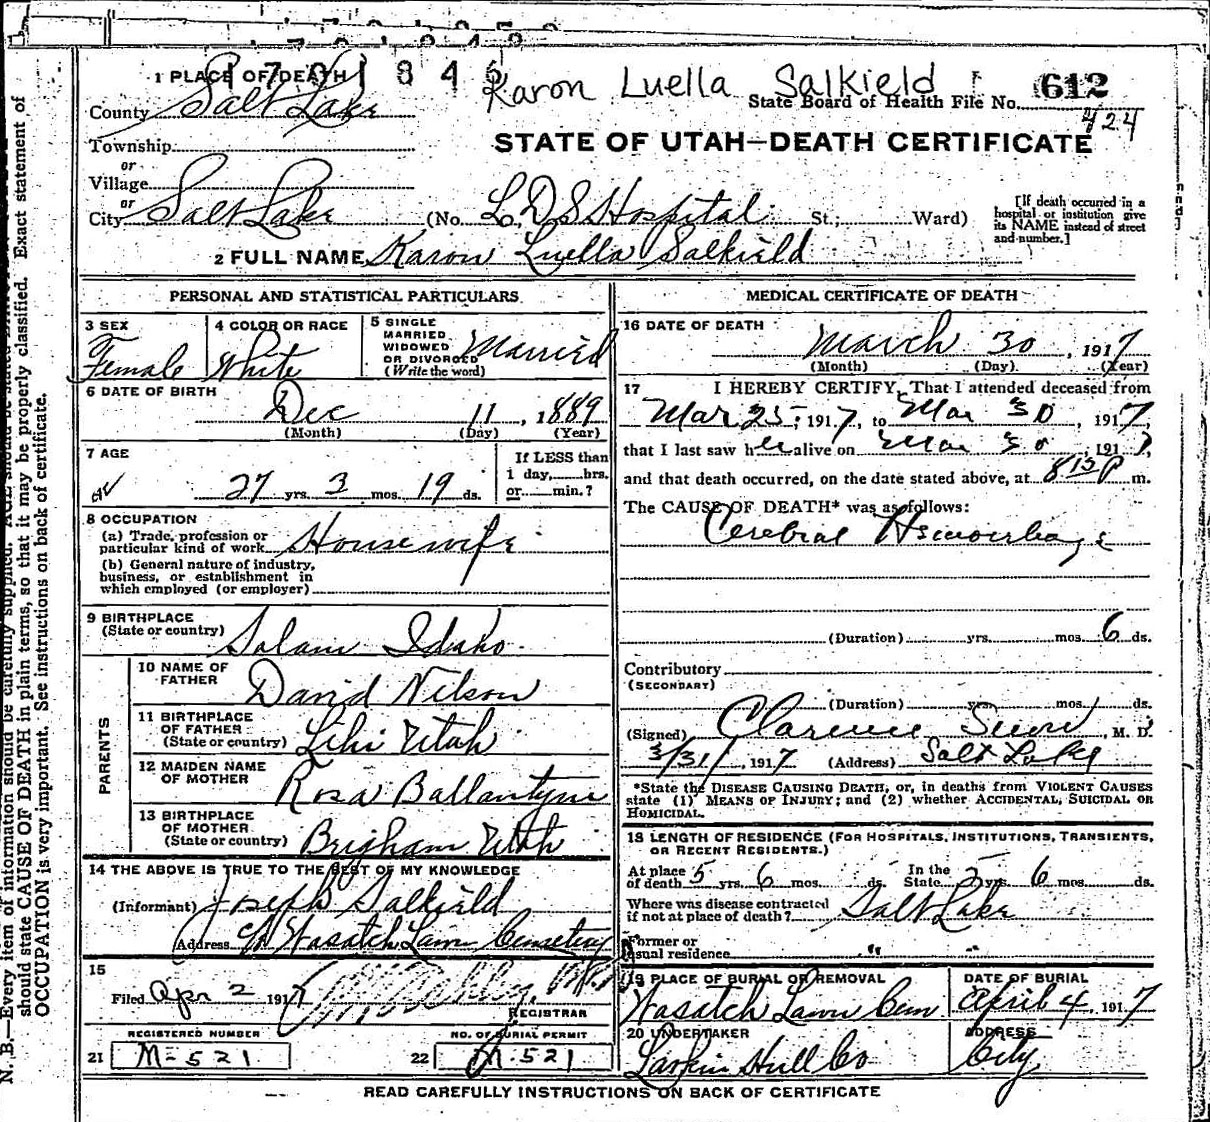 1 PLACE OF DEATH
1701346
Karon Luella Salkield
612
County Salt Lake
State Board of Health File No.
424
Township
STATE OF UTAH—DEATH CERTIFICATE
or
Village
or
City Salt Lake (No. L.D.S. Hospital St.; Ward)
[If death occurred in a
hospital or institution give
its NAME instead of street
and number.]
2 FULL NAME Karon Luella Salkield
PERSONAL AND STATISTICAL PARTICULARS
3 SEX
Female
4 COLOR OR RACE
White
5 SINGLE
MARRIED
WIDOWED
OR DIVORCED
(Write the word)
Married
6 DATE OF BIRTH
Dec 11, 1889
(Month) (Day) (Year)
7 AGE
27 yrs. 3 mos. 19 ds.
If LESS than
1 day, hrs.
or min.?
8 OCCUPATION
(a) Trade, profession or
particular kind of work Housewife
(b) General nature of industry,
business, or establishment in
which employed (or employer)
9 BIRTHPLACE
(State or country) Salam Idaho
PARENTS
10 NAME OF
FATHER David Nilson
11 BIRTHPLACE
OF FATHER
(State or country) Lehi Utah
12 MAIDEN NAME
OF MOTHER Rosa Ballantyne
13 BIRTHPLACE
OF MOTHER
(State or country) Brigham Utah
14 THE ABOVE IS TRUE TO THE BEST OF MY KNOWLEDGE
(Informant) Joseph Salkield
Address Wasatch Lawn Cemetery
15
Filed Apr 2 1917
REGISTRAR
REGISTERED NUMBER
21 M-521
NO. OF BURIAL PERMIT
22 M-521
MEDICAL CERTIFICATE OF DEATH
16 DATE OF DEATH
March 30, 1917
(Month) (Day) (Year)
17 I HEREBY CERTIFY, That I attended deceased from
Mar 25, 1917, to Mar 30, 1917
that I last saw her alive on Mar 30, 1917,
and that death occurred, on the date stated above, at 8 15 P m.
The CAUSE OF DEATH* was as follows:
Cerebral Hemorrhage
(Duration) yrs. mos. 6 ds.
Contributory
(SECONDARY)
(Duration) yrs. mos. ds.
(Signed) Clarence Snow, M. D.
3/31/, 1917 (Address) Salt Lake
*State the DISEASE CAUSING DEATH, or, in deaths from VIOLENT CAUSES
state (1) MEANS OF INJURY; and (2) whether ACCIDENTAL, SUICIDAL OR
HOMICIDAL.
18 LENGTH OF RESIDENCE (FOR HOSPITALS, INSTITUTIONS, TRANSIENTS,
OR RECENT RESIDENTS.)
At place
of death 5 yrs. 6 mos. ds.
In the
State 5 yrs. 6 mos. ds.
Where was disease contracted
if not at place of death? Salt Lake
Former or
usual residence "
19 PLACE OF BURIAL OR REMOVAL
Wasatch Lawn Cem
DATE OF BURIAL
April 4, 1917
20 UNDERTAKER
Larkin Hull Co
ADDRESS
City
READ CAREFULLY INSTRUCTIONS ON BACK OF CERTIFICATE
N. B.—Every item of information should be carefully supplied. AGE should be stated
should state CAUSE OF DEATH in plain terms, so that it may be properly classified. Exact statement of
OCCUPATION is very important. See instructions on back of certificate.